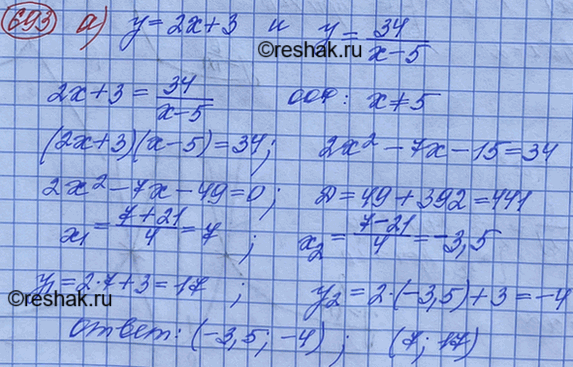 693 а) y = 2x + 3 и y = 34/(x-5)
©reshak.ru
2x + 3 = 34/(x-5) ООФ: x ≠ 5
(2x+3)(x-5) = 34; 2x² - 7x - 15 = 34
2x² - 7x - 49 = 0; D = 49 + 392 = 441
x₁ = (7+21)/4 = 7; x₂ = (7-21)/4 = -3,5
y₁ = 2·7 + 3 = 17; y₂ = 2·(-3,5) + 3 = -4
©reshak.ru
Ответ: (-3,5; -4); (7; 17)